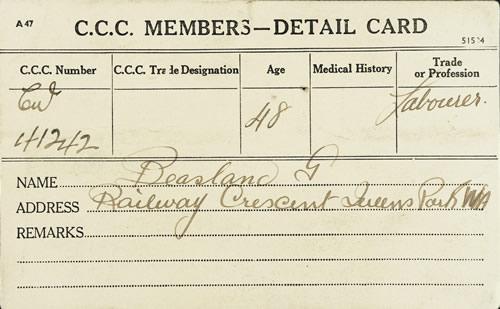 A 47
C.C.C. MEMBERS—DETAIL CARD
51534
C.C.C. Number C.C.C. Trade Designation Age Medical History Trade or Profession
41242 48 Labourer.
NAME Beasland G
ADDRESS Railway Crescent Queens Park WA
REMARKS